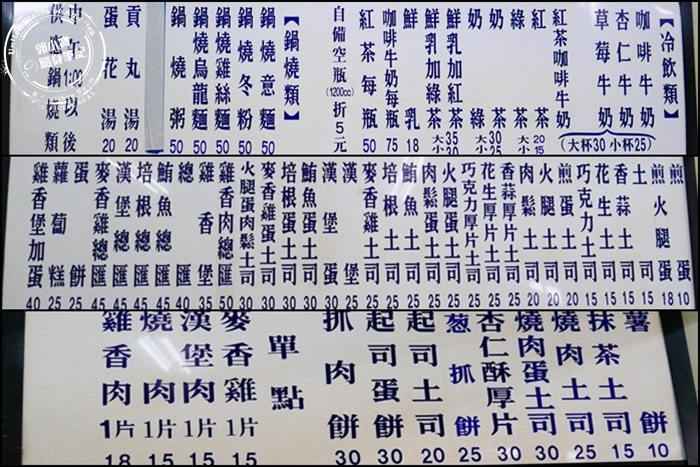 【冷飲類】
咖啡牛奶
杏仁牛奶
草莓牛奶
紅茶咖啡牛奶
(大杯30 小杯25)
紅茶
綠茶
大20 小15
奶茶
奶綠
大30 小25
鮮乳加紅茶
鮮乳加綠茶
大35 小30
鮮乳 18
咖啡牛奶每瓶 75
紅茶每瓶 50
自備空瓶(1200cc)折5元
【鍋燒類】
鍋燒意麵 50
鍋燒冬粉 50
鍋燒雞絲麵 50
鍋燒烏龍麵 50
鍋燒粥 50
貢丸湯 20
蛋花湯 20
中午1:00以後
供應鍋燒類
煎蛋 10
煎火腿蛋 18
土司 15
香蒜土司 15
花生土司 15
巧克力土司 15
煎蛋土司 20
火腿土司 20
肉鬆土司 20
香蒜厚片土司 25
花生厚片土司 25
巧克力厚片土司 25
火腿蛋土司 25
肉鬆蛋土司 25
鮪魚土司 25
培根土司 25
麥香雞土司 25
漢堡 25
漢堡蛋 30
鮪魚蛋土司 30
培根蛋土司 30
麥香雞蛋土司 30
火腿蛋肉鬆土司 30
雞香肉總匯 50
雞香堡 35
總匯 40
鮪魚總匯 45
培根總匯 45
漢堡總匯 45
麥香雞總匯 45
蛋餅 25
蘿蔔糕 25
雞香堡加蛋 40
薯餅 10
抹茶土司 15
燒肉土司 25
燒肉蛋土司 30
杏仁酥厚片 30
葱抓餅 25
起司土司 20
起司蛋餅 30
抓肉餅 30
單點
麥香雞1片 15
漢堡肉1片 15
燒肉1片 15
雞香肉1片 18